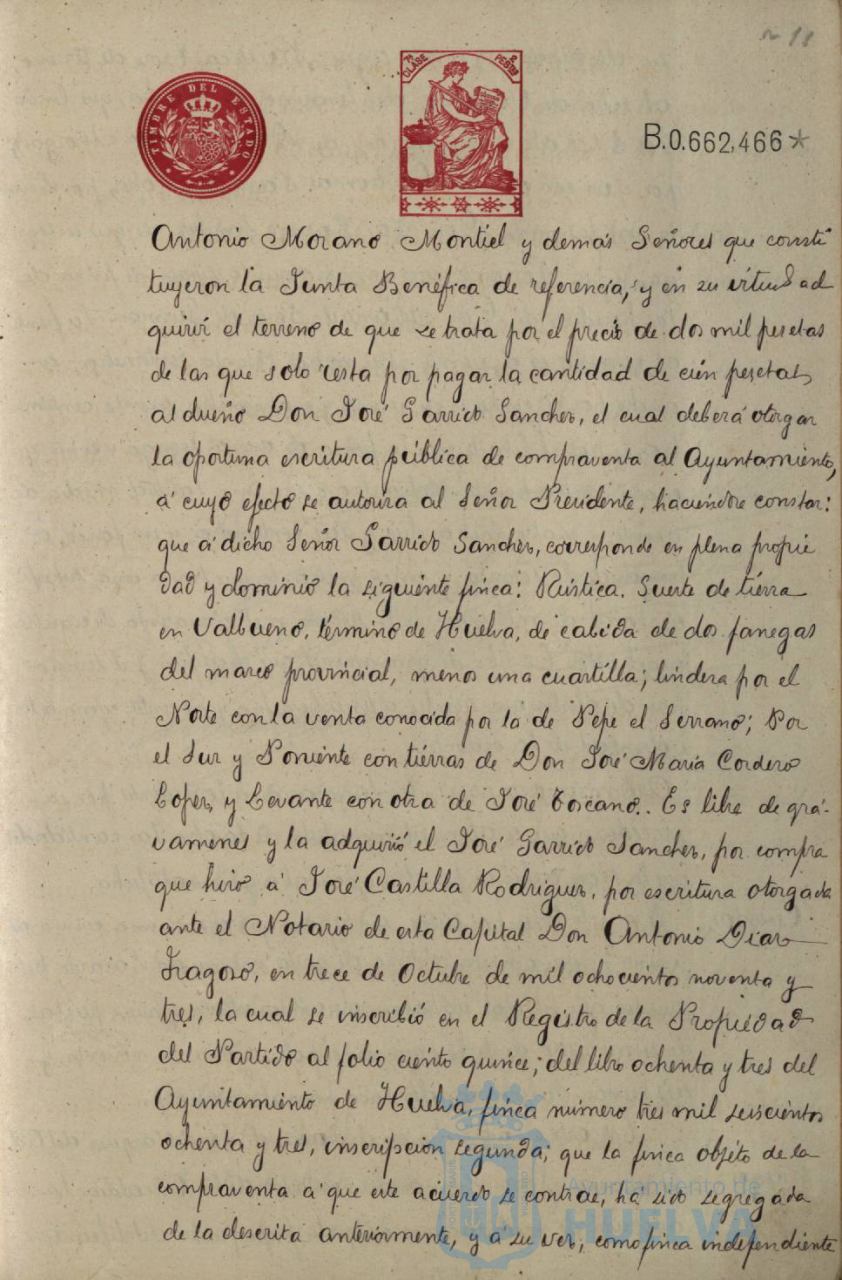 n 11
TIMBRE DEL ESTADO
7ª CLASE 2 PESTAS
B.0.662,466*
Antonio Morano Montiel y demás Señores que consti
tuyeron la Junta Benéfica de referencia, y en su virtud ad
quirir el terreno de que se trata por el precio de dos mil pesetas
de las que solo resta por pagar la cantidad de cien pesetas
al dueño Don José Garrido Sanchez, el cual deberá otorgar
la oportuna escritura pública de compraventa al Ayuntamiento,
á cuyo efecto se autoriza al Señor Presidente, haciendose constar:
que á dicho Señor Garrido Sanchez, corresponde en plena propie
dad y dominio la siguiente finca: Rústica. Suerte de tierra
en Valbueno, término de Huelva, de cabida de dos fanegas
del marco provincial, menos una cuartilla; lindera por el
Norte con la venta conocida por la de Pepe el Serrano; Por
el Sur y Poniente con tierras de Don José María Cordero
Lopez, y Levante con otra de José Toscano.. Es libre de grá-
vamenes y la adquirió el José Garrido Sanchez, por compra
que hizo á José Castilla Rodriguez, por escritura otorgada
ante el Notario de esta Capital Don Antonio Diaz
Fragoso, en trece de Octubre de mil ochocientos noventa y
tres, la cual se inscribió en el Registro de la Propiedad
del Partido al folio ciento quince; del libro ochenta y tres del
Ayuntamiento de Huelva, finca número tres mil seiscientos
ochenta y tres, inscripcion segunda; que la finca objeto de la
compraventa á que este acuerdo se contrae, há sido segregada
de la descrita anteriormente, y á su vez, como finca independiente
Ayuntamiento de
HUELVA